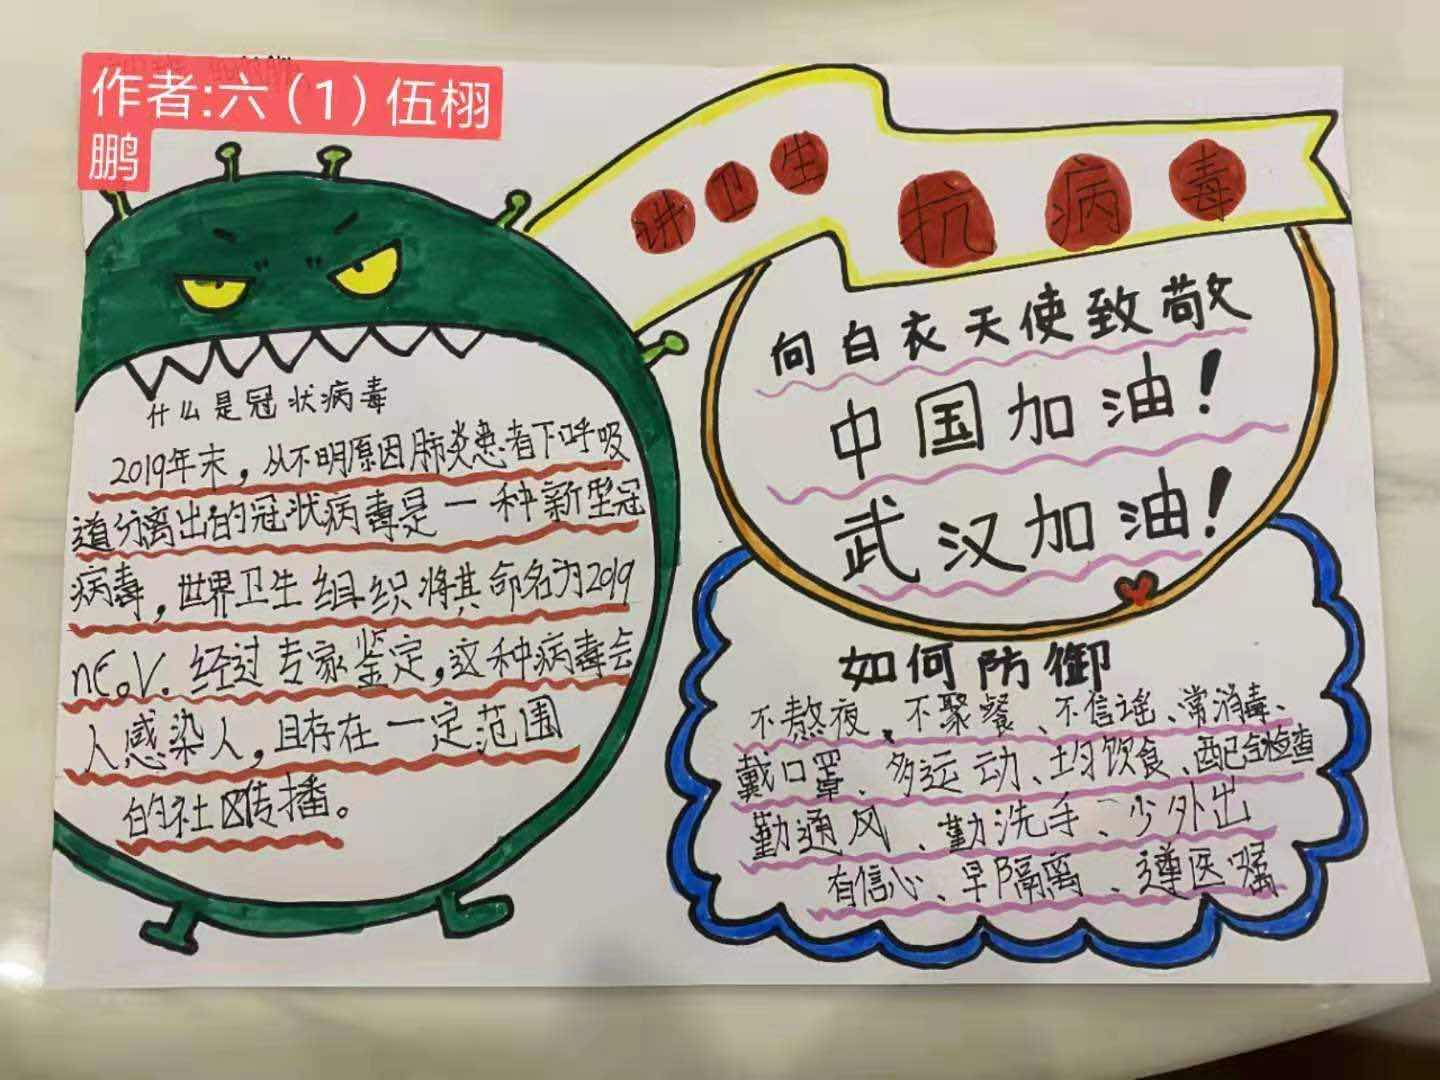 作者:六（1）伍栩
鹏
讲卫生抗病毒
什么是冠状病毒
2019年末，从不明原因肺炎患者下呼吸
道分离出的冠状病毒是一种新型冠
病毒，世界卫生组织将其命名为2019
nCoV. 经过专家鉴定，这种病毒会
人感染人，且存在一定范围
的社区传播。
向白衣天使致敬
中国加油！
武汉加油！
如何防御
不熬夜、不聚餐、不信谣、常消毒、
戴口罩、多运动、均饮食、配合检查
勤通风、勤洗手、少外出
有信心、早隔离、遵医嘱